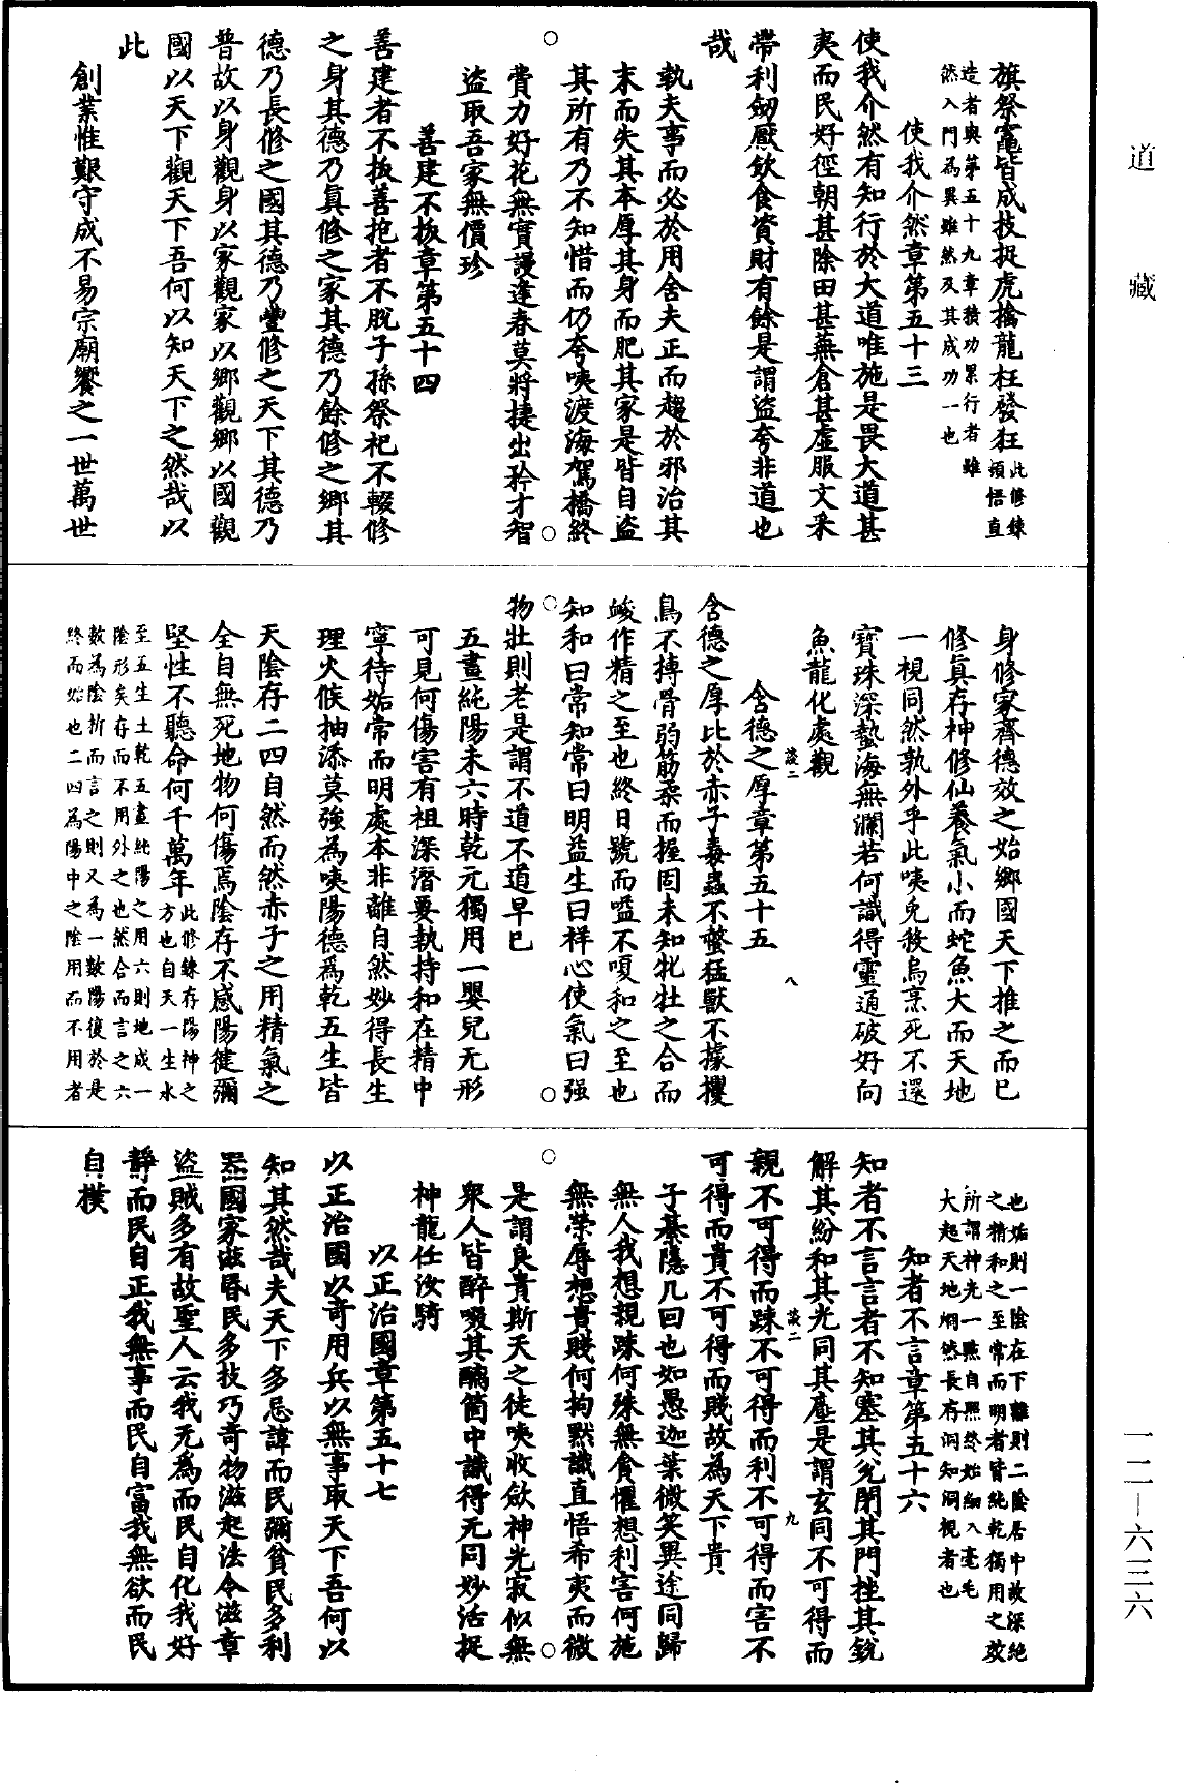 道藏
旗祭竈皆成技捉虎擒龍枉發狂此修錬頓悟直
造者與第五十九章積功累行者雖
然入門為異雖然及其成功一也
使我介然章第五十三
使我介然有知行於大道唯施是畏大道甚
夷而民好徑朝甚除田甚蕪倉甚虛服文采
帶利劒厭飲食資財有餘是謂盜夸非道也
哉
執夫事而必於用舍夫正而趨於邪治其
末而失其本厚其身而肥其家是皆自盜
其所有乃不知惜而仍夸咦渡海駕橋終
費力好花無實謾逢春莫將捷出矜才智
盜取吾家無價珍
善建不拔章第五十四
善建者不拔善抱者不脫子孫祭祀不輟修
之身其德乃真修之家其德乃餘修之鄉其
德乃長修之國其德乃豐修之天下其德乃
普故以身觀身以家觀家以鄉觀鄉以國觀
國以天下觀天下吾何以知天下之然哉以
此
創業惟艱守成不易宗廟饗之一世萬世
身修家齊德效之始鄉國天下推之而已
修真存神修仙養氣小而蛇魚大而天地
一視同然孰外乎此咦兔殺烏烹死不還
寶珠深蟄海無瀾若何識得靈通破好向
魚龍化處觀
含德之厚章第五十五
含德之厚比於赤子毒蟲不螫猛獸不據攫
鳥不搏骨弱筋柔而握固未知牝牡之合而
峻作精之至也終日號而嗌不嗄和之至也
知和曰常知常曰明益生曰祥心使氣曰强
物壯則老是謂不道不道早已
五畫純陽未六時乾元獨用一嬰兒无形
可見何傷害有祖深潛要執持和在精中
寧待姤常而明處本非離自然妙得長生
理火候抽添莫強為咦陽德爲乾五生皆
天陰存二四自然而然赤子之用精氣之
全自無死地物何傷焉陰存不感陽健彌
堅性不聽命何千萬年此修錬存陽神之方也自天一生水
至五生土乾五畫純陽之用六則地成一
陰形矣存而不用外之也然合而言之六
數為陰析而言之則又為一數陽復於是
終而始也二四為陽中之陰用而不用者
也姤則一陰在下離則二陰居中故深絶
之精和之至常而明者皆純乾獨用之效
所謂神光一點自照終始細入毫毛
大起天地炯然長存洞知洞視者也
知者不言章第五十六
知者不言言者不知塞其兌閉其門挫其銳
解其紛和其光同其塵是謂玄同不可得而
親不可得而踈不可得而利不可得而害不
可得而貴不可得而賤故為天下貴
子綦隱几回也如愚迦葉微笑異途同歸
無人我想親踈何殊無貪懼想利害何施
無榮辱想貴賤何拘黙識直悟希夷而微
是謂良貴斯天之徒咦收歛神光寂似無
衆人皆醉啜其醨箇中識得元同妙活捉
神龍任汝騎
以正治國章第五十七
以正治國以奇用兵以無事取天下吾何以
知其然哉夫天下多忌諱而民彌貧民多利
器國家滋昏民多技巧奇物滋起法令滋章
盜賊多有故聖人云我无為而民自化我好
靜而民自正我無事而民自富我無欲而民
自樸
談二
八
談二
九
一二—六三六